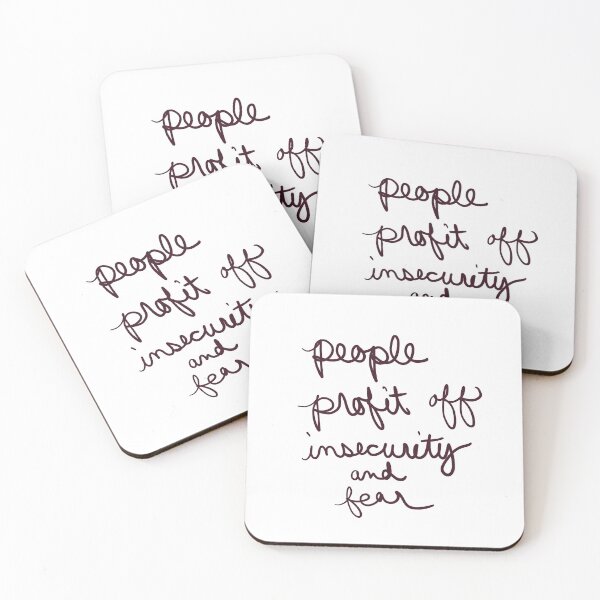 people
profit off
people
profit off
insecurity
and
people
profit off
insecurit
and
fear
people
profit off
insecurity
and
fear